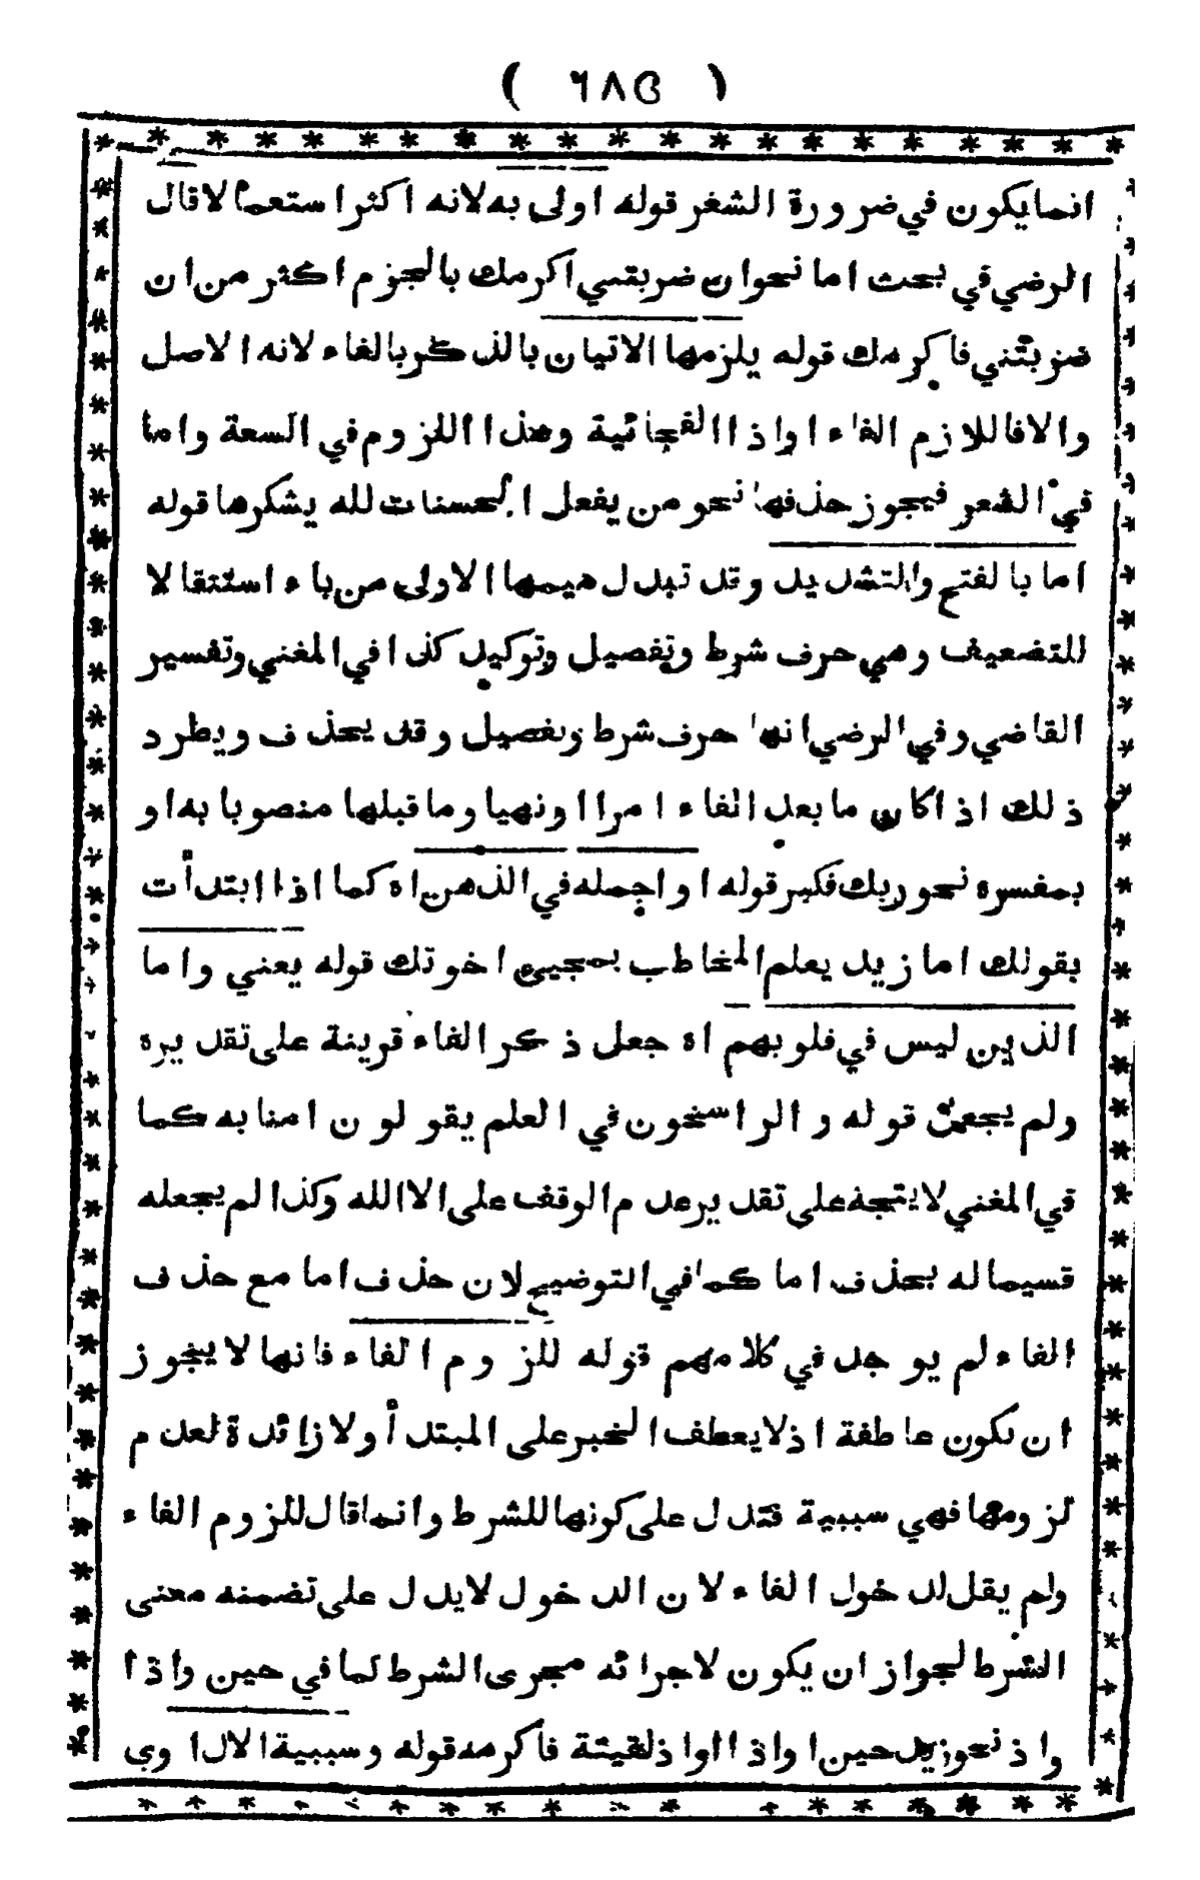 ( ٦٨٥ )
انما يكون في ضرورة الشعر قوله اولى به لانه اكثر استعمالا قال
الرضي في بحث اما نحو ان ضربتني اكرمك بالجزم اكثر من ان
ضربتني فاكرمك قوله يلزمها الاتيان بالذكر بالفاء لانه الاصل
والا فاللازم الفاء او اذا الفجائية وهذا اللزوم في السعة واما
في الشعر فيجوز حذفها نحو من يفعل الحسنات لله يشكرها قوله
اما بالفتح والتشديد وقد تبدل ميمها الاولى من ياء استثقالا
للتضعيف وهي حرف شرط وتفصيل وتوكيد كذا في المغني وتفسير
القاضي وفي الرضي انها حرف شرط وتفصيل وقد يحذف ويطرد
ذلك اذا كان ما بعد الفاء امرا او نهيا وما قبلها منصوبا به او
بمفسره نحو ربك فكبر قوله او اجمله في الذهن اه كما اذا ابتدأت
بقولك اما زيد يعلم المخاطب بمجيئ اخوتك قوله يعني واما
الذين ليس في قلوبهم اه جعل ذكر الفاء قرينة على تقديره
ولم يجعل قوله والراسخون في العلم يقولون امنا به كما
في المغني لا يتجه على تقدير عدم الوقف على الا الله وكذا لم يجعله
قسيما له بحذف اما كما في التوضيح لان حذف اما مع حذف
الفاء لم يوجد في كلامهم قوله للزوم الفاء فانها لا يجوز
ان تكون عاطفة اذ لا يعطف الخبر على المبتدأ ولا زائدة لعدم
لزومها فهي سببية فتدل على كونها للشرط وانما قال للزوم الفاء
ولم يقل لدخول الفاء لان الدخول لا يدل على تضمنه معنى
الشرط لجواز ان يكون لاجرائه مجرى الشرط لما في حين واذا
واذ نحو زيد حين او اذا او اذ لقيته فاكرمه قوله وسببية الاول